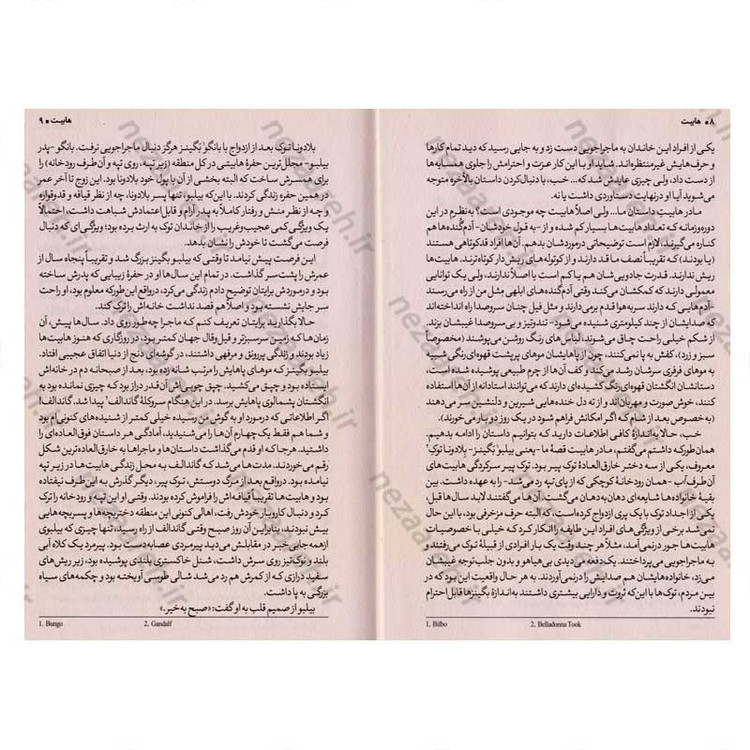 ۸ ▪ هابیت
یکی از افراد این خاندان به ماجراجویی دست زد و به جایی رسید که دید تمام کارها
و حرف‌هایش غیرمنتظره‌اند. شاید او با این کار عزت و احترامش را جلوی همسایه‌ها
از دست داد، ولی چیزی عایدش شد که... خب، با دنبال‌کردن داستان بالاخره متوجه
می‌شوید آیا او درنهایت دستاوردی داشت یا نه.
مادر هابیتِ داستان ما... ولی اصلاً هابیت چه موجودی است؟ به‌نظرم در این
دوره‌وزمانه که تعداد هابیت‌ها بسیار کم شده و از -به قول خودشان- آدم‌گنده‌ها هم
کناره می‌گیرند، لازم است توضیحاتی درموردشان بدهم. آن‌ها افراد قدکوتاهی هستند
(یا بودند) که تقریباً نصف ما قد دارند و از کوتوله‌های ریش‌دار کوتاه‌ترند. هابیت‌ها
ریش ندارند. قدرت جادویی‌شان هم یا کم است یا اصلاً ندارند، ولی یک توانایی
معمولی دارند که کمکشان می‌کند وقتی آدم‌گنده‌های ابلهی مثل من از راه می‌رسند
-آدم‌هایی که دارند سربه‌هوا قدم برمی‌دارند و مثل فیل چنان سروصدا راه انداخته‌اند
که صدایشان از چند کیلومتری شنیده می‌شود- تندوتیز و بی‌سروصدا غیبشان بزند.
از شکم خیلی راحت چاق می‌شوند. لباس‌های رنگ روشن می‌پوشند (مخصوصاً
سبز و زرد)، کفش به پا نمی‌کنند، چون از پاهایشان موهای پرپشت قهوه‌ای‌رنگی شبیه
به موهای فرفری سرشان رشد می‌کند، و کف آن‌ها از چرم طبیعی پوشیده شده است،
دستانشان انگشتان قهوه‌ای‌رنگ کشیده‌ای دارند که می‌توانند استادانه از آن‌ها استفاده
کنند، خوش‌صورت و مهربان‌اند و از ته دل خنده‌هایی شیرین و دلنشین سر می‌دهند
(به‌خصوص بعد از شام که اگر امکانش فراهم شود در یک روز دو بار می‌خورند).
خب، حالا به‌اندازهٔ کافی اطلاعات دارید که بتوانیم داستان را ادامه بدهیم.
همان‌طورکه داشتم می‌گفتم، مادر هابیت قصهٔ ما -یعنی بیلبو۱ بَگینز- بِلادونا توک۲
معروف، یکی از سه دختر خارق‌العادهٔ توک پیر بود. توک پیر سرکردگی هابیت‌های
آن‌طرف‌آب -همان رودخانهٔ کوچکی که از پای تپه رد می‌شد- را به عهده داشت.
بقیهٔ خانواده‌ها شایعه‌ای دهان‌به‌دهان می‌گشت، آن‌ها می‌گفتند لابد سال‌ها قبل،
یکی از اجداد توک با یک پری ازدواج کرده است، که البته حرف مزخرفی بود، با این حال
نمی‌شد برخی از ویژگی‌های افراد این طایفه را انکار کرد که خیلی با خصوصیات
هابیت‌ها جور درنمی‌آمد، مثلاً هر چند وقت یک بار افرادی از قبیلهٔ توک می‌رفتند و
به ماجراجویی می‌پرداختند. یک‌دفعه می‌دیدی بی‌هیاهو و بدون جلب‌توجه غیبشان
می‌زد، خانواده‌هایشان هم صدایش را درنمی‌آوردند. به هر حال واقعیت این بود که در
بین مردم، توک‌ها با این‌که ثروت و دارایی بیشتری داشتند به‌اندازهٔ بگینزها قابل احترام
نبودند.
1. Bilbo 2. Belladonna Took
هابیت ▪ ۹
بلادونا توک بعد از ازدواج با بانگو۱ بَگینز هرگز دنبال ماجراجویی نرفت. بانگو -پدر
بیلبو- مجلل‌ترین حفرهٔ هابیتی در کل منطقه (زیر تپه، روی تپه و آن‌طرف رودخانه) را
برای همسرش ساخت که البته بخشی از آن با پول خود بلادونا بود. این زوج تا آخر عمر
در همین حفره زندگی کردند. با این‌که بیلبو، تنها پسر بلادونا، چه از نظر قیافه و قدوقواره
و چه از نظر منش و رفتار کاملاً به پدر آرام و قابل‌اعتمادش شباهت داشت، احتمالاً
یک ویژگی کمی عجیب‌وغریب را از خاندان توک به ارث برده بود؛ ویژگی‌ای که دنبال
فرصت می‌گشت تا خودش را نشان بدهد.
این فرصت پیش نیامد تا وقتی که بیلبو بگینز بزرگ شد و تقریباً پنجاه سال از
عمرش را پشت‌سر گذاشت. در تمام این سال‌ها او در حفرهٔ زیبایی که پدرش ساخته
بود و درموردش برایتان توضیح دادم زندگی می‌کرد، درواقع این‌طورکه معلوم بود، او راحت
سر جایش نشسته بود و اصلاً هم قصد نداشت خانه‌اش را ترک کند.
حالا بگذارید برایتان تعریف کنم که ماجرا چه‌طور روی داد. سال‌ها پیش، آن
زمان‌ها که زمین سرسبزتر و قیل‌وقال جهان کمتر بود، در روزگاری که هنوز هابیت‌ها
زیاد بودند و زندگی پررونق و مرفهی داشتند، در گوشه‌ای دنج از دنیا اتفاق عجیبی افتاد.
بیلبو بگینز که موهای پاهایش را مرتب شانه زده بود، بعد از صبحانه دم در خانه‌اش
ایستاده بود و چپق می‌کشید. چپق چوبی‌اش آن‌قدر دراز بود که چیزی نمانده بود به
انگشتان پشمالوی پاهایش برسد. در این هنگام سروکلهٔ گاندالف۲ پیدا شد. گاندالف!
اگر اطلاعاتی که درمورد او به گوش من رسیده خیلی کمتر از شنیده‌های کنونی‌ام بود
و شما هم فقط یک‌چهارم آن‌ها را می‌شنیدید، آمادگی هر داستان فوق‌العاده‌ای را
داشتید. هرجا که او قدم می‌گذاشت داستان‌ها و ماجراها به خارق‌العاده‌ترین شکل
رقم می‌خوردند. مدت‌ها می‌شد که گاندالف به محل زندگی هابیت‌ها در زیر تپه
نیامده بود. درواقع بعد از مرگ دوستش، توک پیر، دیگر گذرش به این‌طرف نیفتاده
بود و هابیت‌ها تقریباً قیافه‌اش را فراموش کرده بودند. وقتی او این تپه و رودخانه را ترک
کرد و دنبال کاروبار خودش رفت، اهالی کنونی این منطقه دختربچه‌ها و پسربچه‌هایی
بیش نبودند، بنابراین آن روز صبح وقتی گاندالف از راه رسید، تنها چیزی که بیلبوی
ازهمه‌جابی‌خبر در مقابلش می‌دید پیرمردی عصابه‌دست بود. پیرمرد یک کلاه آبی
بلند و نوک‌تیز روی سرش داشت، شنل خاکستری بلندی پوشیده بود، زیر ریش‌های
سفید درازی که از کمرش هم رد می‌شد شالی طوسی آویخته بود و چکمه‌های سیاه
بزرگی به پا داشت.
بیلبو از صمیم قلب به او گفت: «صبح به‌خیر.»
1. Bungo 2. Gandalf
nezaareh.ir